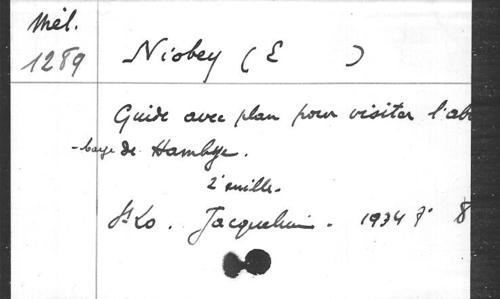 Mél.
1289
Niobey (E )
Guide avec plan pour visiter l'ab
-baye de Hambye.
St Lo. Jacqueline. 1934 8